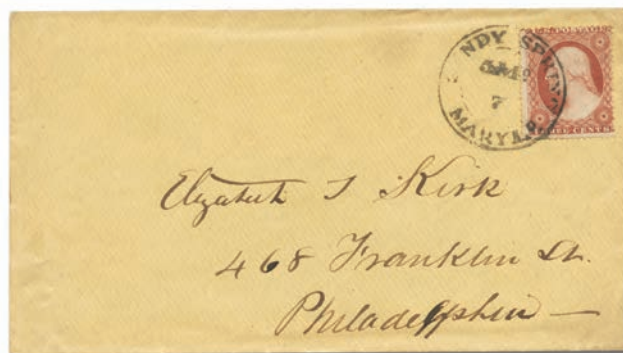 NDY SPRING
7
MARYLD.
CENTS
Elizabeth T Kirk
468 Franklin St.
Philadelphia —